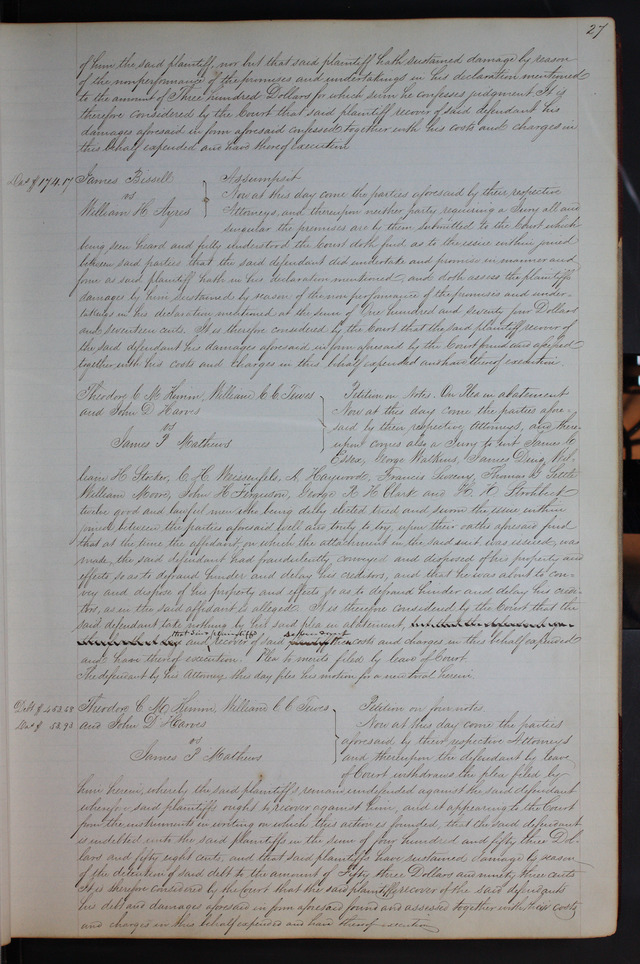 27
of him the said plaintiff, nor but that said plaintiff hath sustained damage by reason
of the nonperformance of the promises and undertakings in his declaration mentioned
to the amount of Three hundred Dollars for which sum he confesses judgment It is
therefore considered by the Court that said plaintiff recover of said defendant his
damages aforesaid in form aforesaid confessed together with his costs and charges in
this behalf expended and have thereof execution
James Bissell
vs
William H Ayres
Assumpsit
Now at this day come the parties aforesaid by their respective
Attorneys, and thereupon neither party requiring a Jury all and
singular the premises are by them submitted to the Court which
being seen heard and fully understood the Court doth find as to the issue within joined
between said parties that the said defendant did undertake and promise in manner and
form as said plaintiff hath in his declaration mentioned, and doth assess the plaintiffs
damages by him sustained by reason of the non performance of the promises and under-
takings in his declaration mentioned at the sum of One hundred and seventy four Dollars
and seventeen cents. It is therefore considered by the Court that the said plaintiff recover of
the said defendant his damages aforesaid in form aforesaid by the Court found and assessed
together with his costs and charges in this behalf expended and have thereof execution.
Theodore C McKimm, William C C Tewes
and John D Harves
vs
James P Mathews
Petition on Notes. On Plea in abatement
Now at this day come the parties afore-
said by their respective Attorneys, and there
upon comes also a Jury to wit James C
Essex, George Watkins, James Ding, Wil-
liam H Stocker, C H Weissenfels, A Haywood, Francis Sweeny, Thomas
William Moore, John H Ferguson, George R H Clark and H H
twelve good and lawful men who being duly elected tried and sworn the issue within
joined between the parties aforesaid well and truly to try upon their oaths aforesaid find
that at the time the affidavit, on which the attachment in the said suit was issued, was
made, the said defendant had fraudulently conveyed and disposed of his property and
effects so as to defraud hinder and delay his creditors, and that he was about to con-
vey and dispose of his property and effects so as to defraud hinder and delay his credi-
tors, as in the said affidavit is alleged. It is therefore considered by the Court that the
said defendant take nothing by his said plea in abatement,
that said plaintiffs defendant
and recover of said costs and charges in this behalf expended
and have thereof execution. Plea to merits filed by leave of Court
The defendant by his Attorney this day files his motion for a new trial herein
Debt $453.58
Dam $53.93
Theodore C McKimm, William C C Tewes
and John D Harves
vs
James P Mathews
Petition on four notes
Now at this day come the parties
aforesaid by their respective Attorneys
and thereupon the defendant by leave
of Court withdraws the plea filed by
him herein, whereby the said plaintiffs remain undefended against the said defendant
wherefore said plaintiffs ought to recover against him, and it appearing to the Court
from the instruments in writing on which this action is founded, that the said defendant
is indebted unto the said plaintiffs in the sum of four hundred and fifty three Dol-
lars and fifty eight cents, and that said plaintiffs have sustained damage by reason
of the detention of said debt to the amount of Fifty three Dollars and ninety three cents
It is therefore considered by the Court that the said plaintiffs recover of the said defendants
his debt and damages aforesaid in form aforesaid found and assessed together with their costs
and charges in this behalf expended and have thereof execution